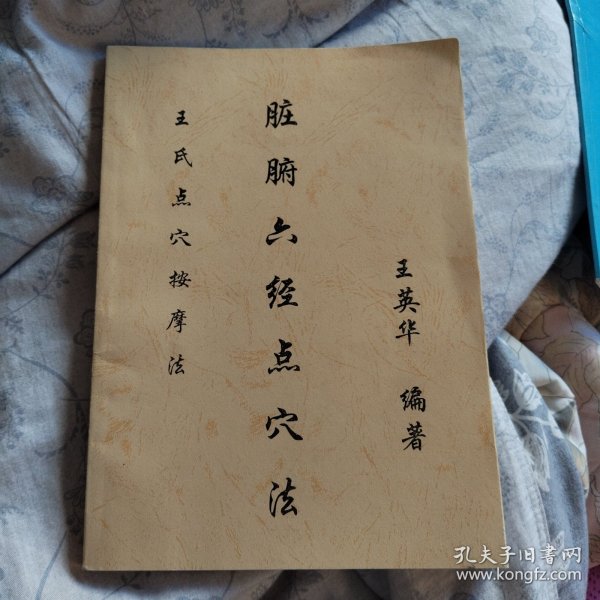 王英华 编著
脏腑六经点穴法
王氏点穴按摩法
孔夫子旧书网
www.kongfz.com